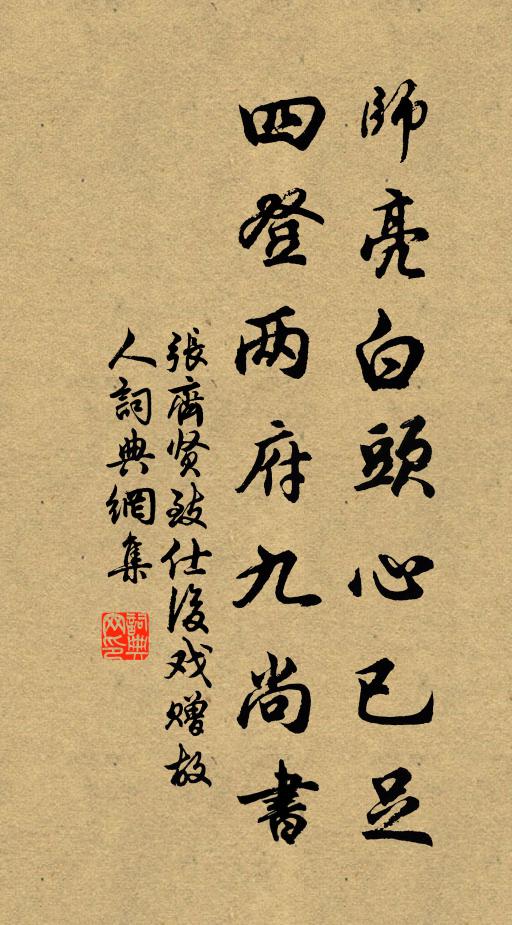 師亮白頭心已足
四登两府九尚書
張齊贤致仕後戏贈故
人詞典網集
詞典
网印